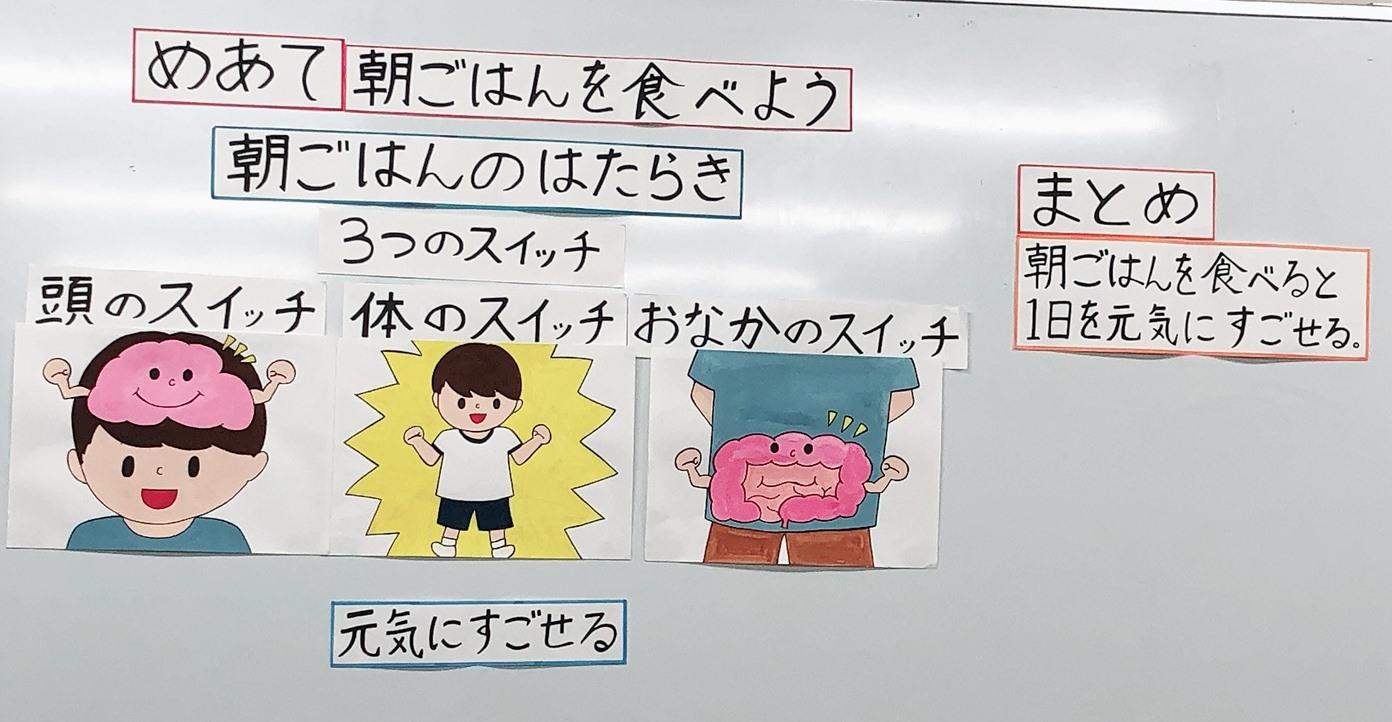 めあて 朝ごはんを食べよう
朝ごはんのはたらき
3つのスイッチ
頭のスイッチ
体のスイッチ
おなかのスイッチ
元気にすごせる
まとめ
朝ごはんを食べると
1日を元気にすごせる。